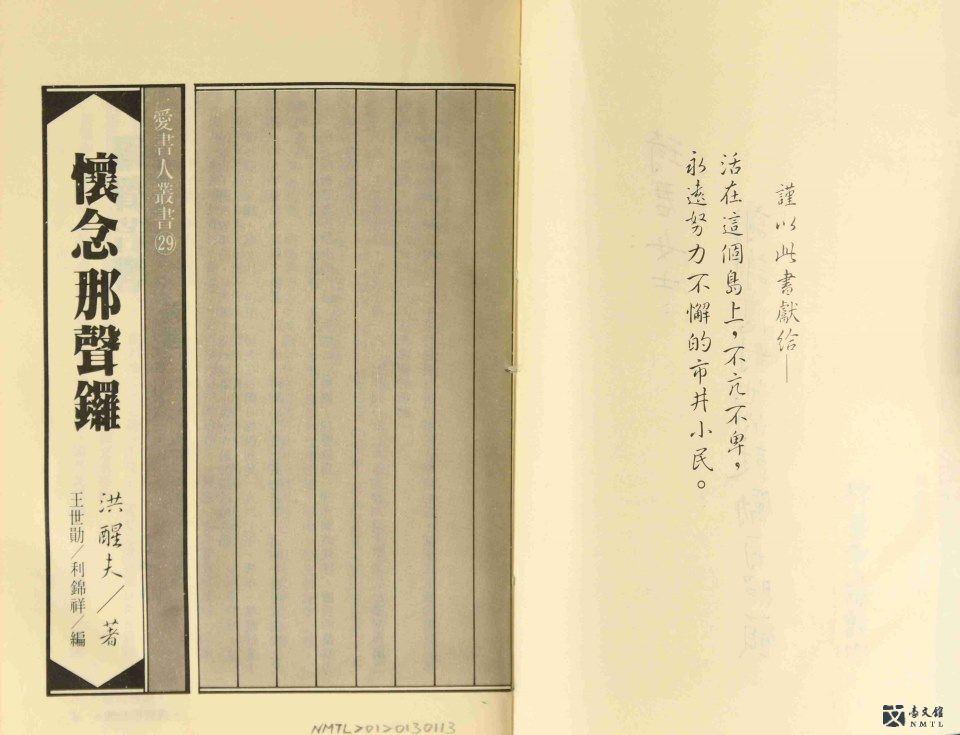 謹以此書獻給—
活在這個島上，不亢不卑，
永遠努力不懈的市井小民。
愛書人叢書(29)
懷念那聲鑼
洪醒夫／著
王世勛／利錦祥／編
NMTL>01>0130113
臺文館
NMTL